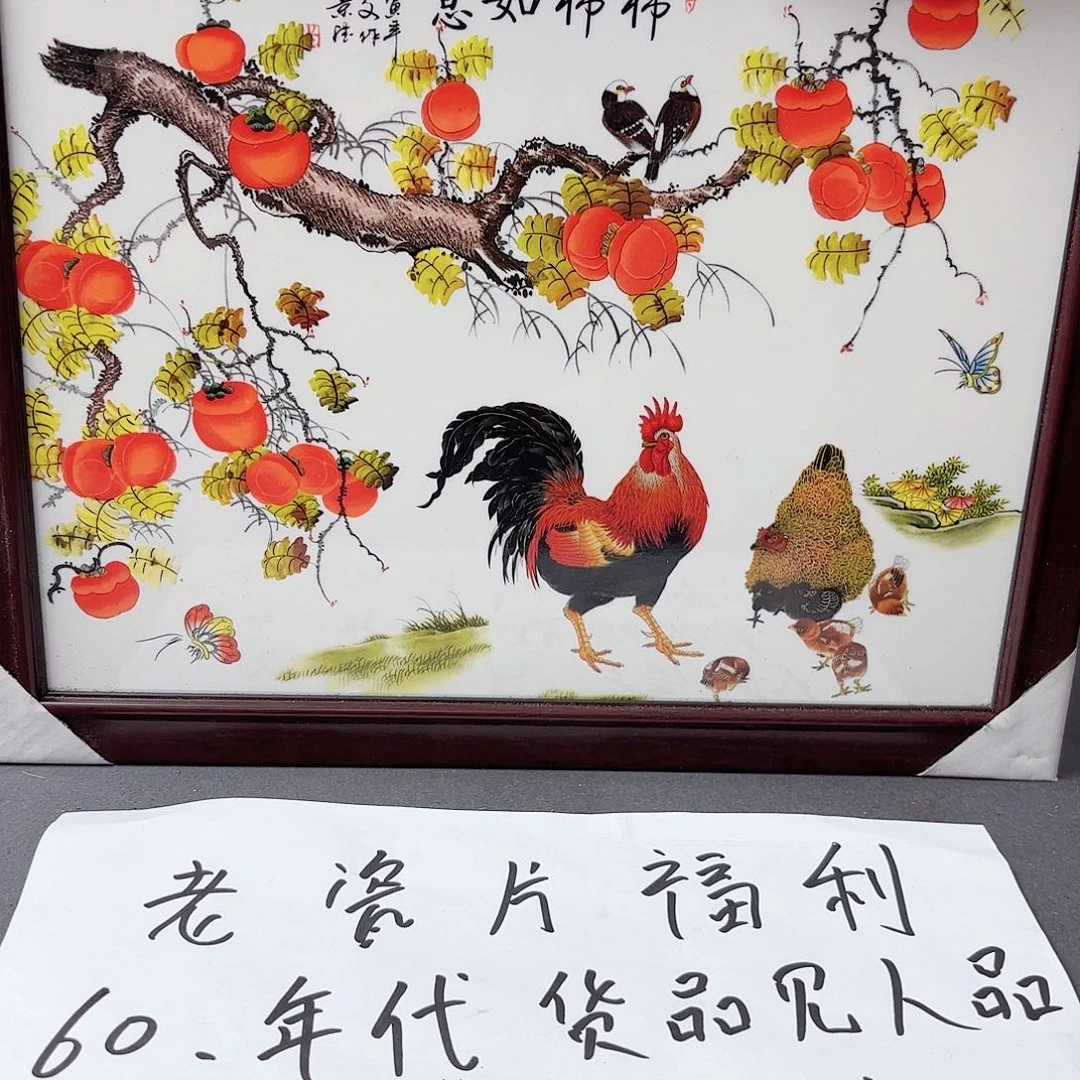 柿柿如意
寅年
老瓷片福利
60.年代货品见人品